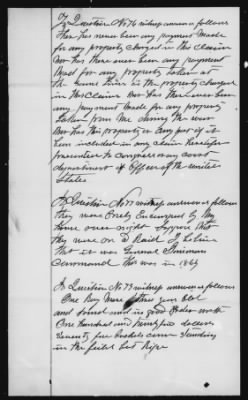 To Question No 76 witness answers as follows
There has never been any payment made
for any property charged in this claim
Nor has there ever been any payment
Made for any property taken at
the same time as the property charged
in this claim Nor has there ever been
any payment made for any property
taken from me during the war
Nor has this property or any part of it
been included in any claim heretofore
presented to congress or any court
department or officer of the united
states
To Question No 77 witness answers as follows
they were only Encamped by My
House over night I suppose that
they were on a Raid I believe
that it was General
command this was in 1864
To Question No 78 witness answers as follows
One Bay Mare years old
and sound and in good order worth
One Hundred and twenty five dollars
Seventy five bushels corn standing
in the field but Ripe